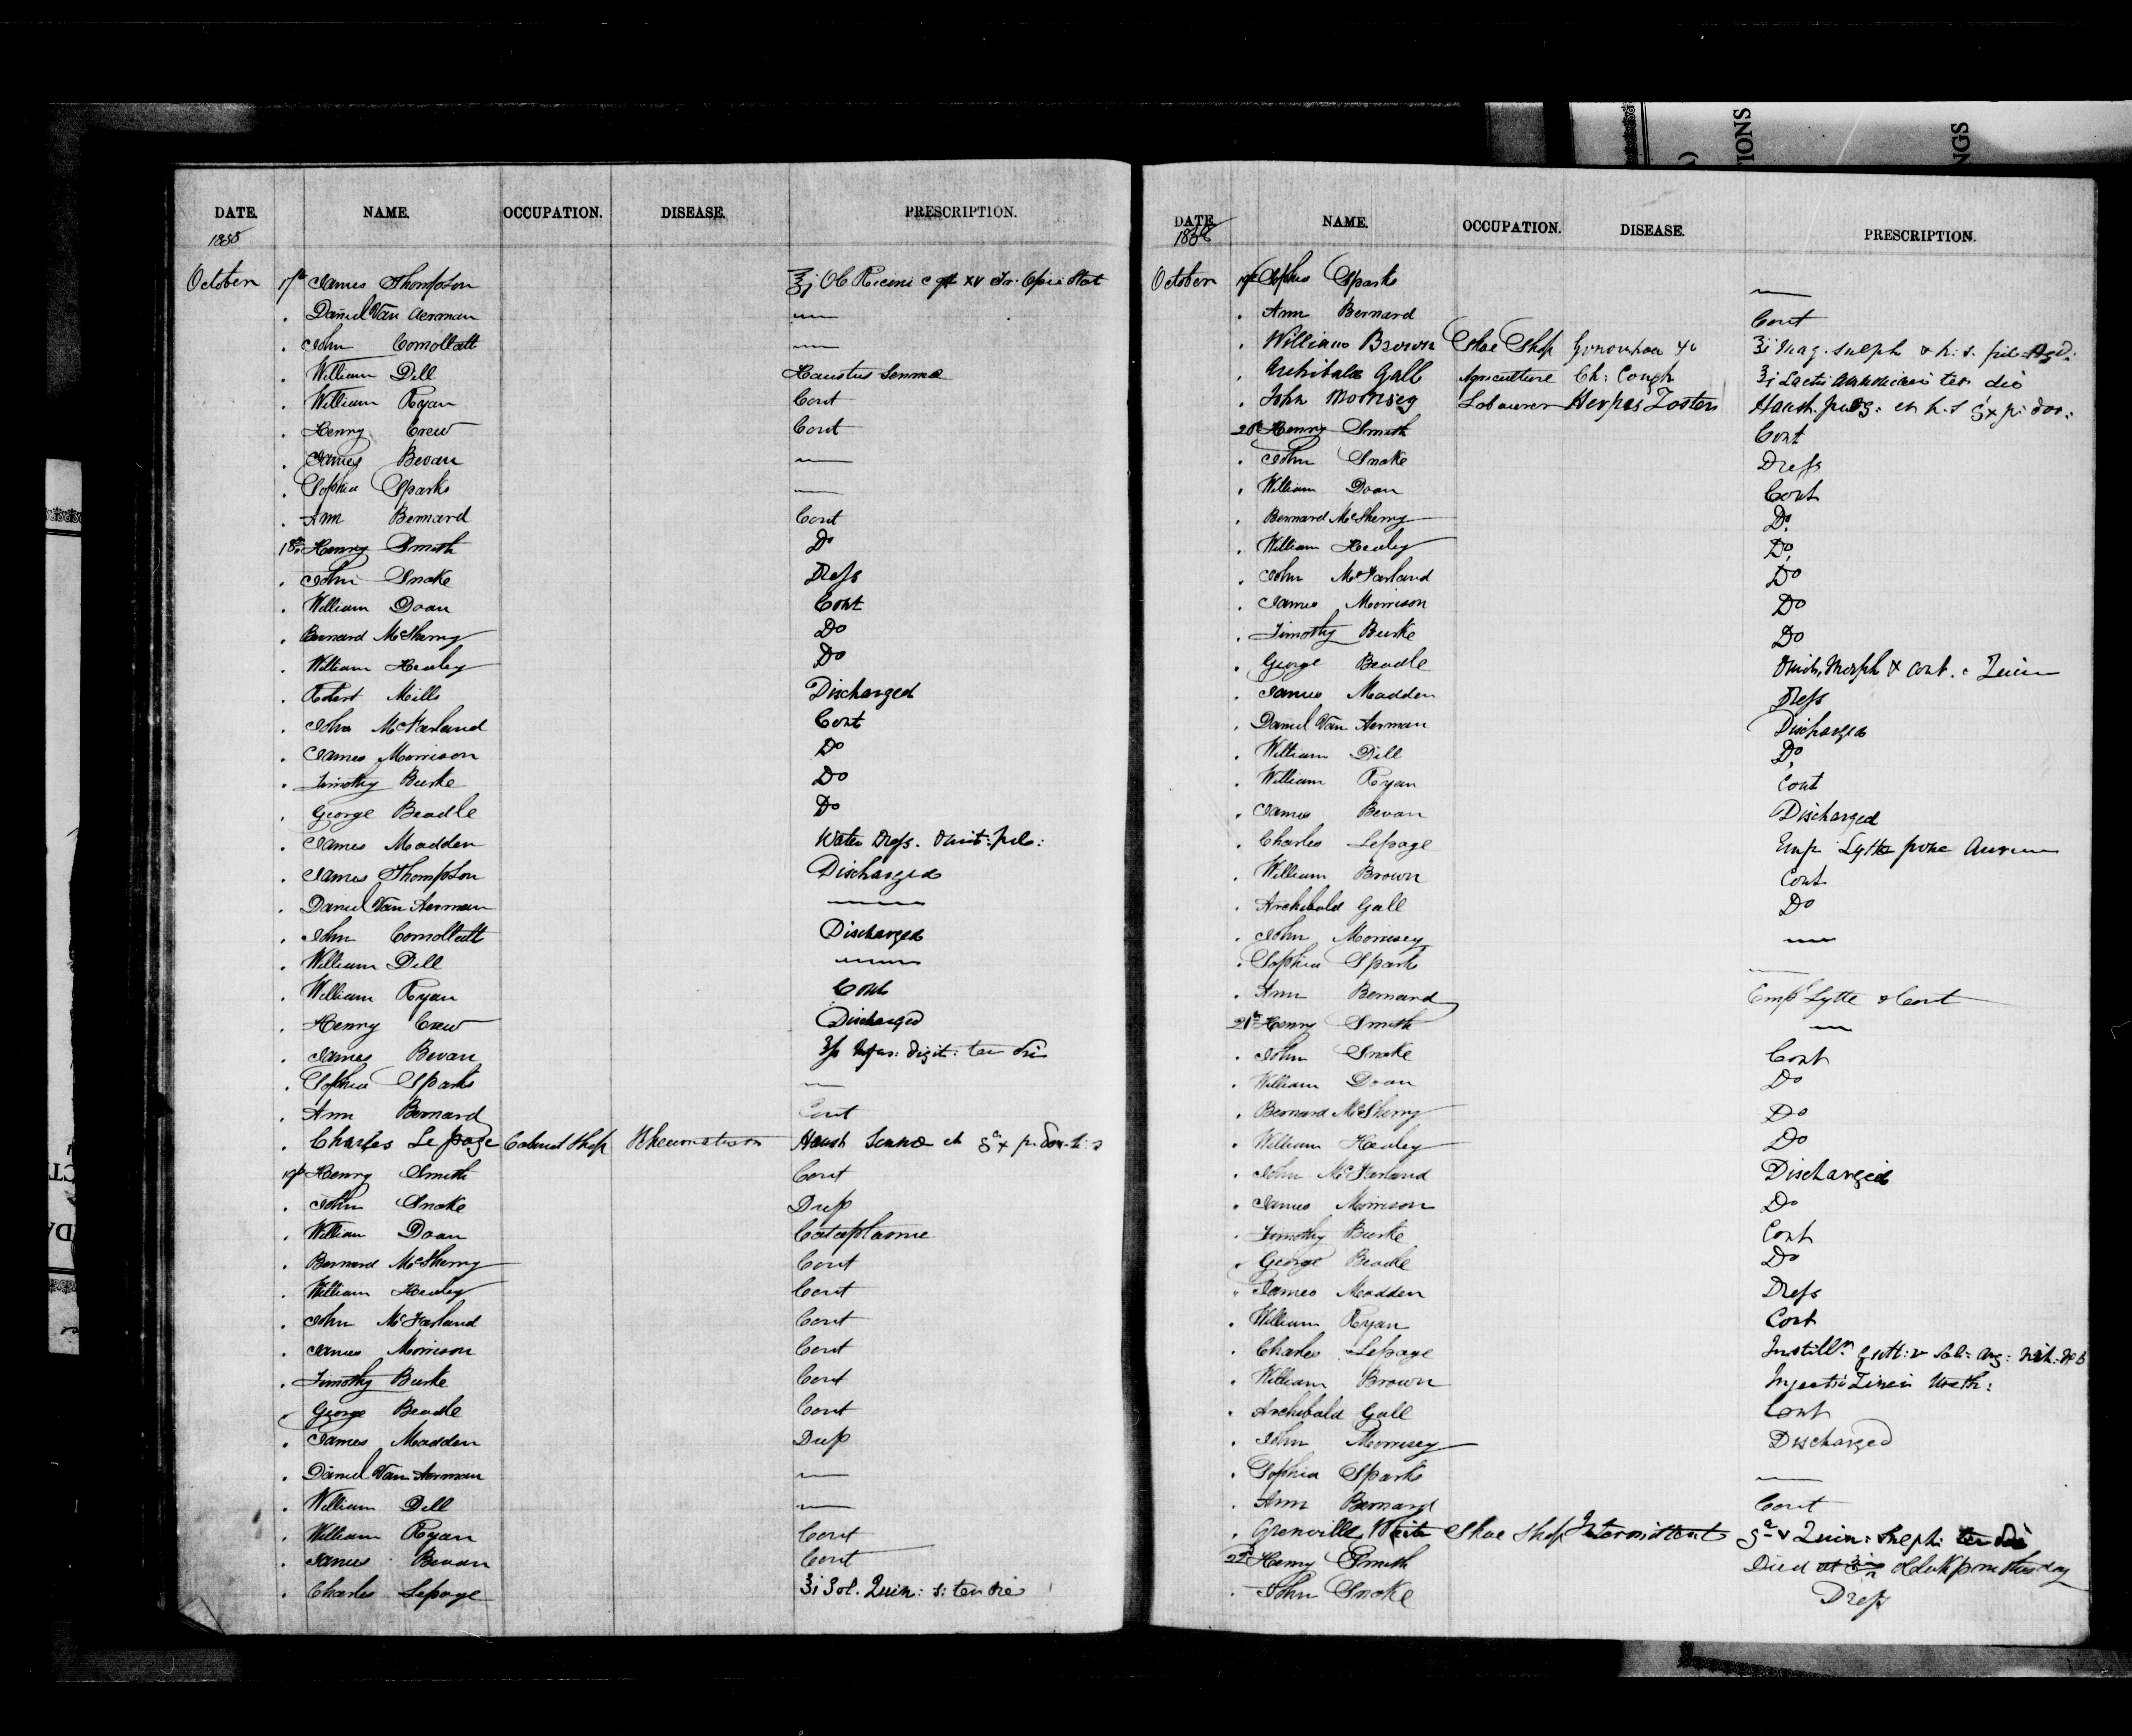 DATE. NAME. OCCUPATION. DISEASE. PRESCRIPTION.
1858
October 17th James Thompson ℥j Ol Ricini c gtt xv Tr. Opii Stat
. Daniel Van Aerman —
. John Comollatt —
. William Dill Haustus Sennae
. William Ryan Cont
. Henry Crew Cont
. James Bevan —
. Sophia Sparks —
. Ann Bernard Cont
18th Henry Smith Do
. John Snoke Dress
. William Doan Cont
. Bernard McSherry Do
. William Healey Do
. Robert Mills Discharged
. John McFarland Cont
. James Morrison Do
. Timothy Burke Do
. George Beadle Do
. James Madden Water Dress. Omit: pil:
. James Thompson Discharged
. Daniel Van Aerman —
. John Comollatt Discharged
. William Dill —
. William Ryan Cont
. Henry Crew Discharged
. James Bevan Infus: digit: ter die
. Sophia Sparks —
. Ann Bernard Cont
. Charles Lepage Cabinet Shop Rheumatism Haust Sennae et
19th Henry Smith Cont
. John Snoke Dress
. William Doan Cataplasme
. Bernard McSherry Cont
. William Healey Cont
. John McFarland Cont
. James Morrison Cont
. Timothy Burke Cont
. George Beadle Cont
. James Madden Dress
. Daniel Van Aerman —
. William Dill —
. William Ryan Cont
. James Bevan Cont
. Charles Lepage ʒi Sol. Quin: s: ter die
DATE. NAME. OCCUPATION. DISEASE. PRESCRIPTION.
1858
October 19th Sophia Sparks —
. Ann Bernard Cont
. William Brown Shoe Shop Gonorrhoea ʒi Mag. Sulph & h: s. pil
. Archibald Gall Agriculture Ch: Cough ʒi Lactis Ammoniaci ter die
. John Morrisey Labourer Herpes Zoster Haust. purg: et h.s
20th Henry Smith Cont
. John Snoke Dress
. William Doan Cont
. Bernard McSherry Do.
. William Healey Do.
. John McFarland Do
. James Morrison Do
. Timothy Burke Do
. George Beadle Omit. Morph & Cont. Quin
. James Madden Dress
. Daniel Van Aerman Discharged
. William Dill Do.
. William Ryan Cont
. James Bevan Discharged
. Charles Lepage Emp Lytte pone Aurem
. William Brown Cont
. Archibald Gall Do
. John Morrisey —
. Sophia Sparks —
. Ann Bernard Emp Lytte & Cont
21st Henry Smith —
. John Snoke Cont
. William Doan Do
. Bernard McSherry Do
. William Healey Do
. John McFarland Discharged
. James Morrison Do
. Timothy Burke Cont
. George Beadle Do
" James Madden Dress
. William Ryan Cont
. Charles Lepage Instill gutt: v Sol: Arg: Nit:
. William Brown Injectio Zinci Ureth:
. Archibald Gall Cont
. John Morrisey Discharged
. Sophia Sparks —
. Ann Bernard Cont
. Grenville Shoe Shop Intermittent Quin: Sulph: ter die
22d Henry Smith Died oclock pm this day
. John Snoke Dress
IONS
NGS